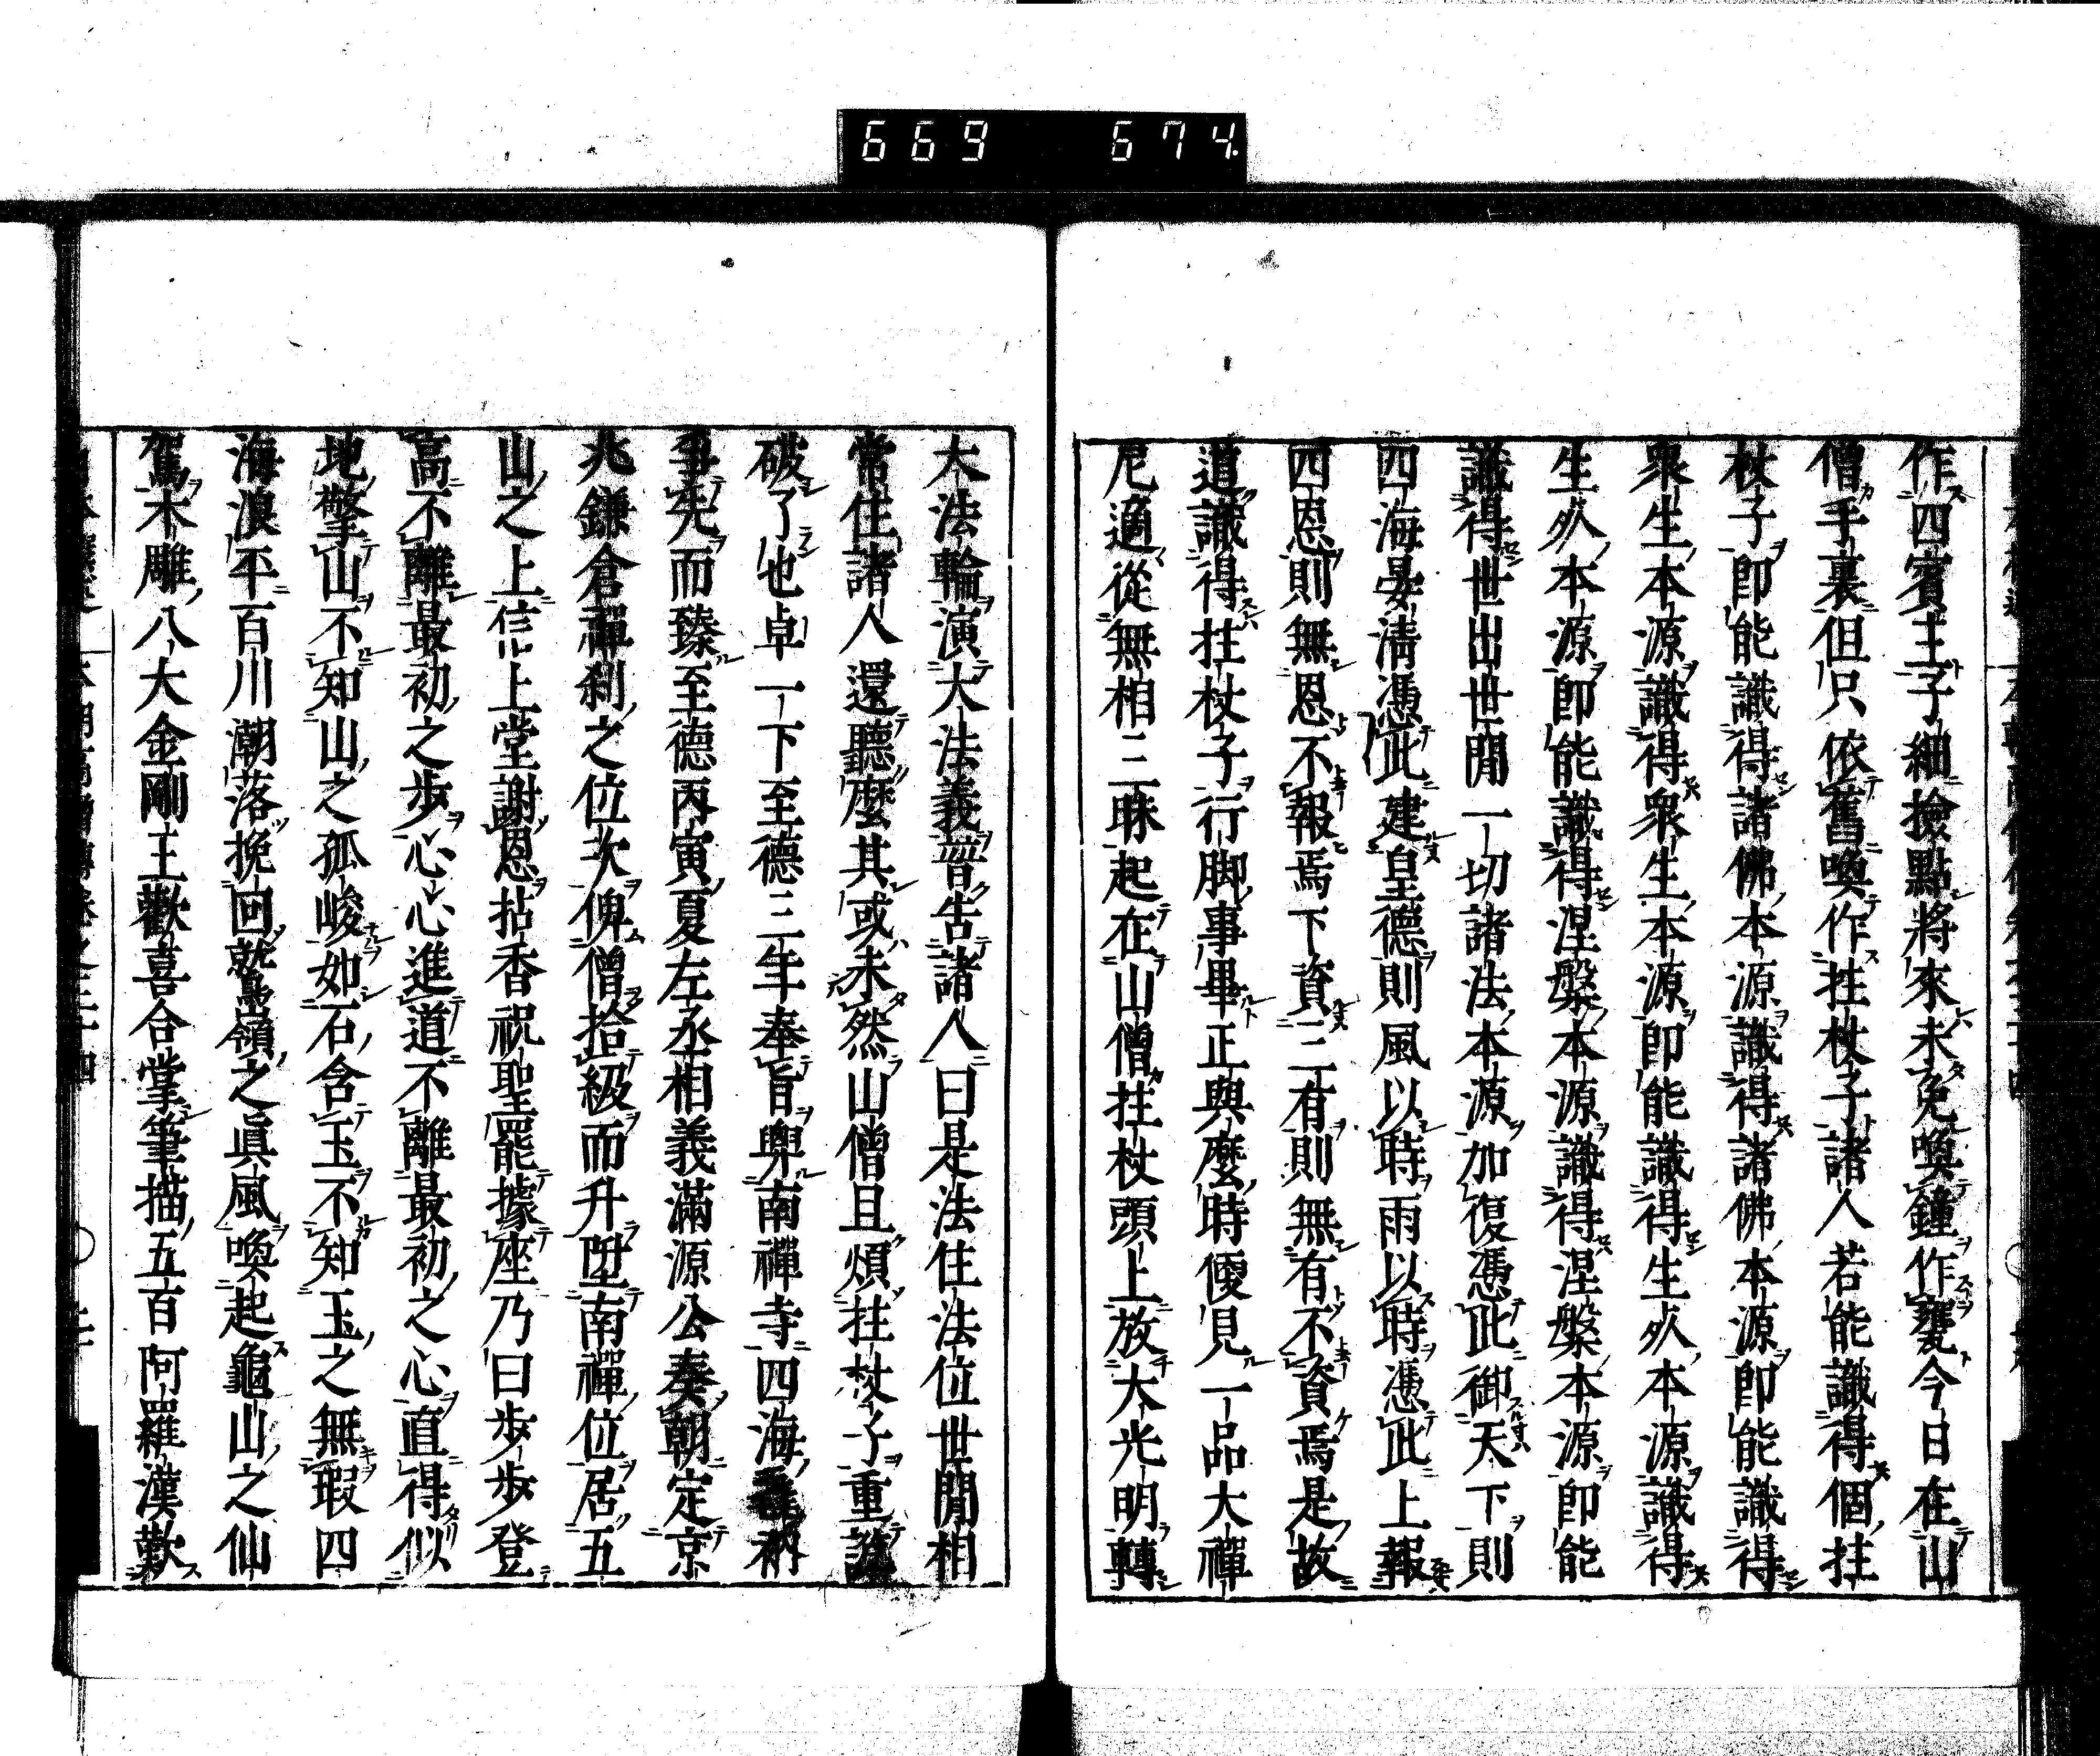 669 674.
作四賓主子細撿點將來未免喚鐘作甕今日在山
僧手裏但只依舊喚作拄杖子諸人若能識得個拄
杖子即能識得諸佛本源識得諸佛本源即能識得
衆生本源識得衆生本源即能識得生死本源識得
生死本源即能識得涅槃本源識得涅槃本源即能
識得世出世間一切諸法本源加復憑此御天下則
四海晏淸憑此建皇德則風以時雨以時憑此上報
四恩則無恩不報焉下資三有則無有不資焉是故
道識得拄杖子行脚事畢正與麼時便見一品大禪
尼適從無相三昧起在山僧拄杖頭上放大光明轉
大法輪演大法義普告諸人曰是法住法位世間相
常住諸人還聽麼其或未然山僧且煩拄杖子重說
破了也卓一下至德三年奉旨與南禪寺四海衲
事先而臻至德丙寅夏左丞相義滿源公奏朝定京
兆鎌倉禪刹之位次俾僧拾級而升陞南禪位居五
山之上信上堂謝恩拈香祝聖罷據座乃曰步步登
高不離最初之步心心進道不離最初之心直得似
地擎山不知山之孤峻如石含玉不知玉之無瑕四
海浪平百川潮落挽回鷲嶺之眞風喚起龜山之仙
駕木雕八大金剛王歡喜合掌筆描五百阿羅漢歎